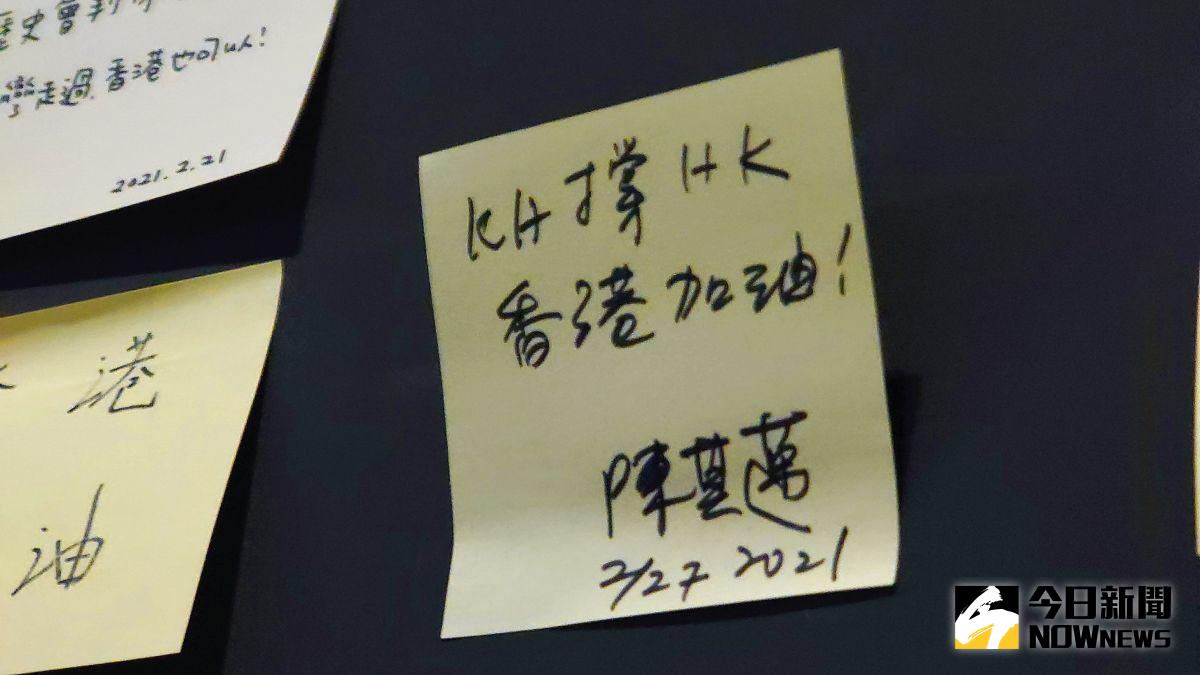 歷史會
走過.香港也可以!
2021.2.21
港
油
KH撐HK
香港加油!
陳其邁
2/27 2021
今日新聞
NOWNEWS